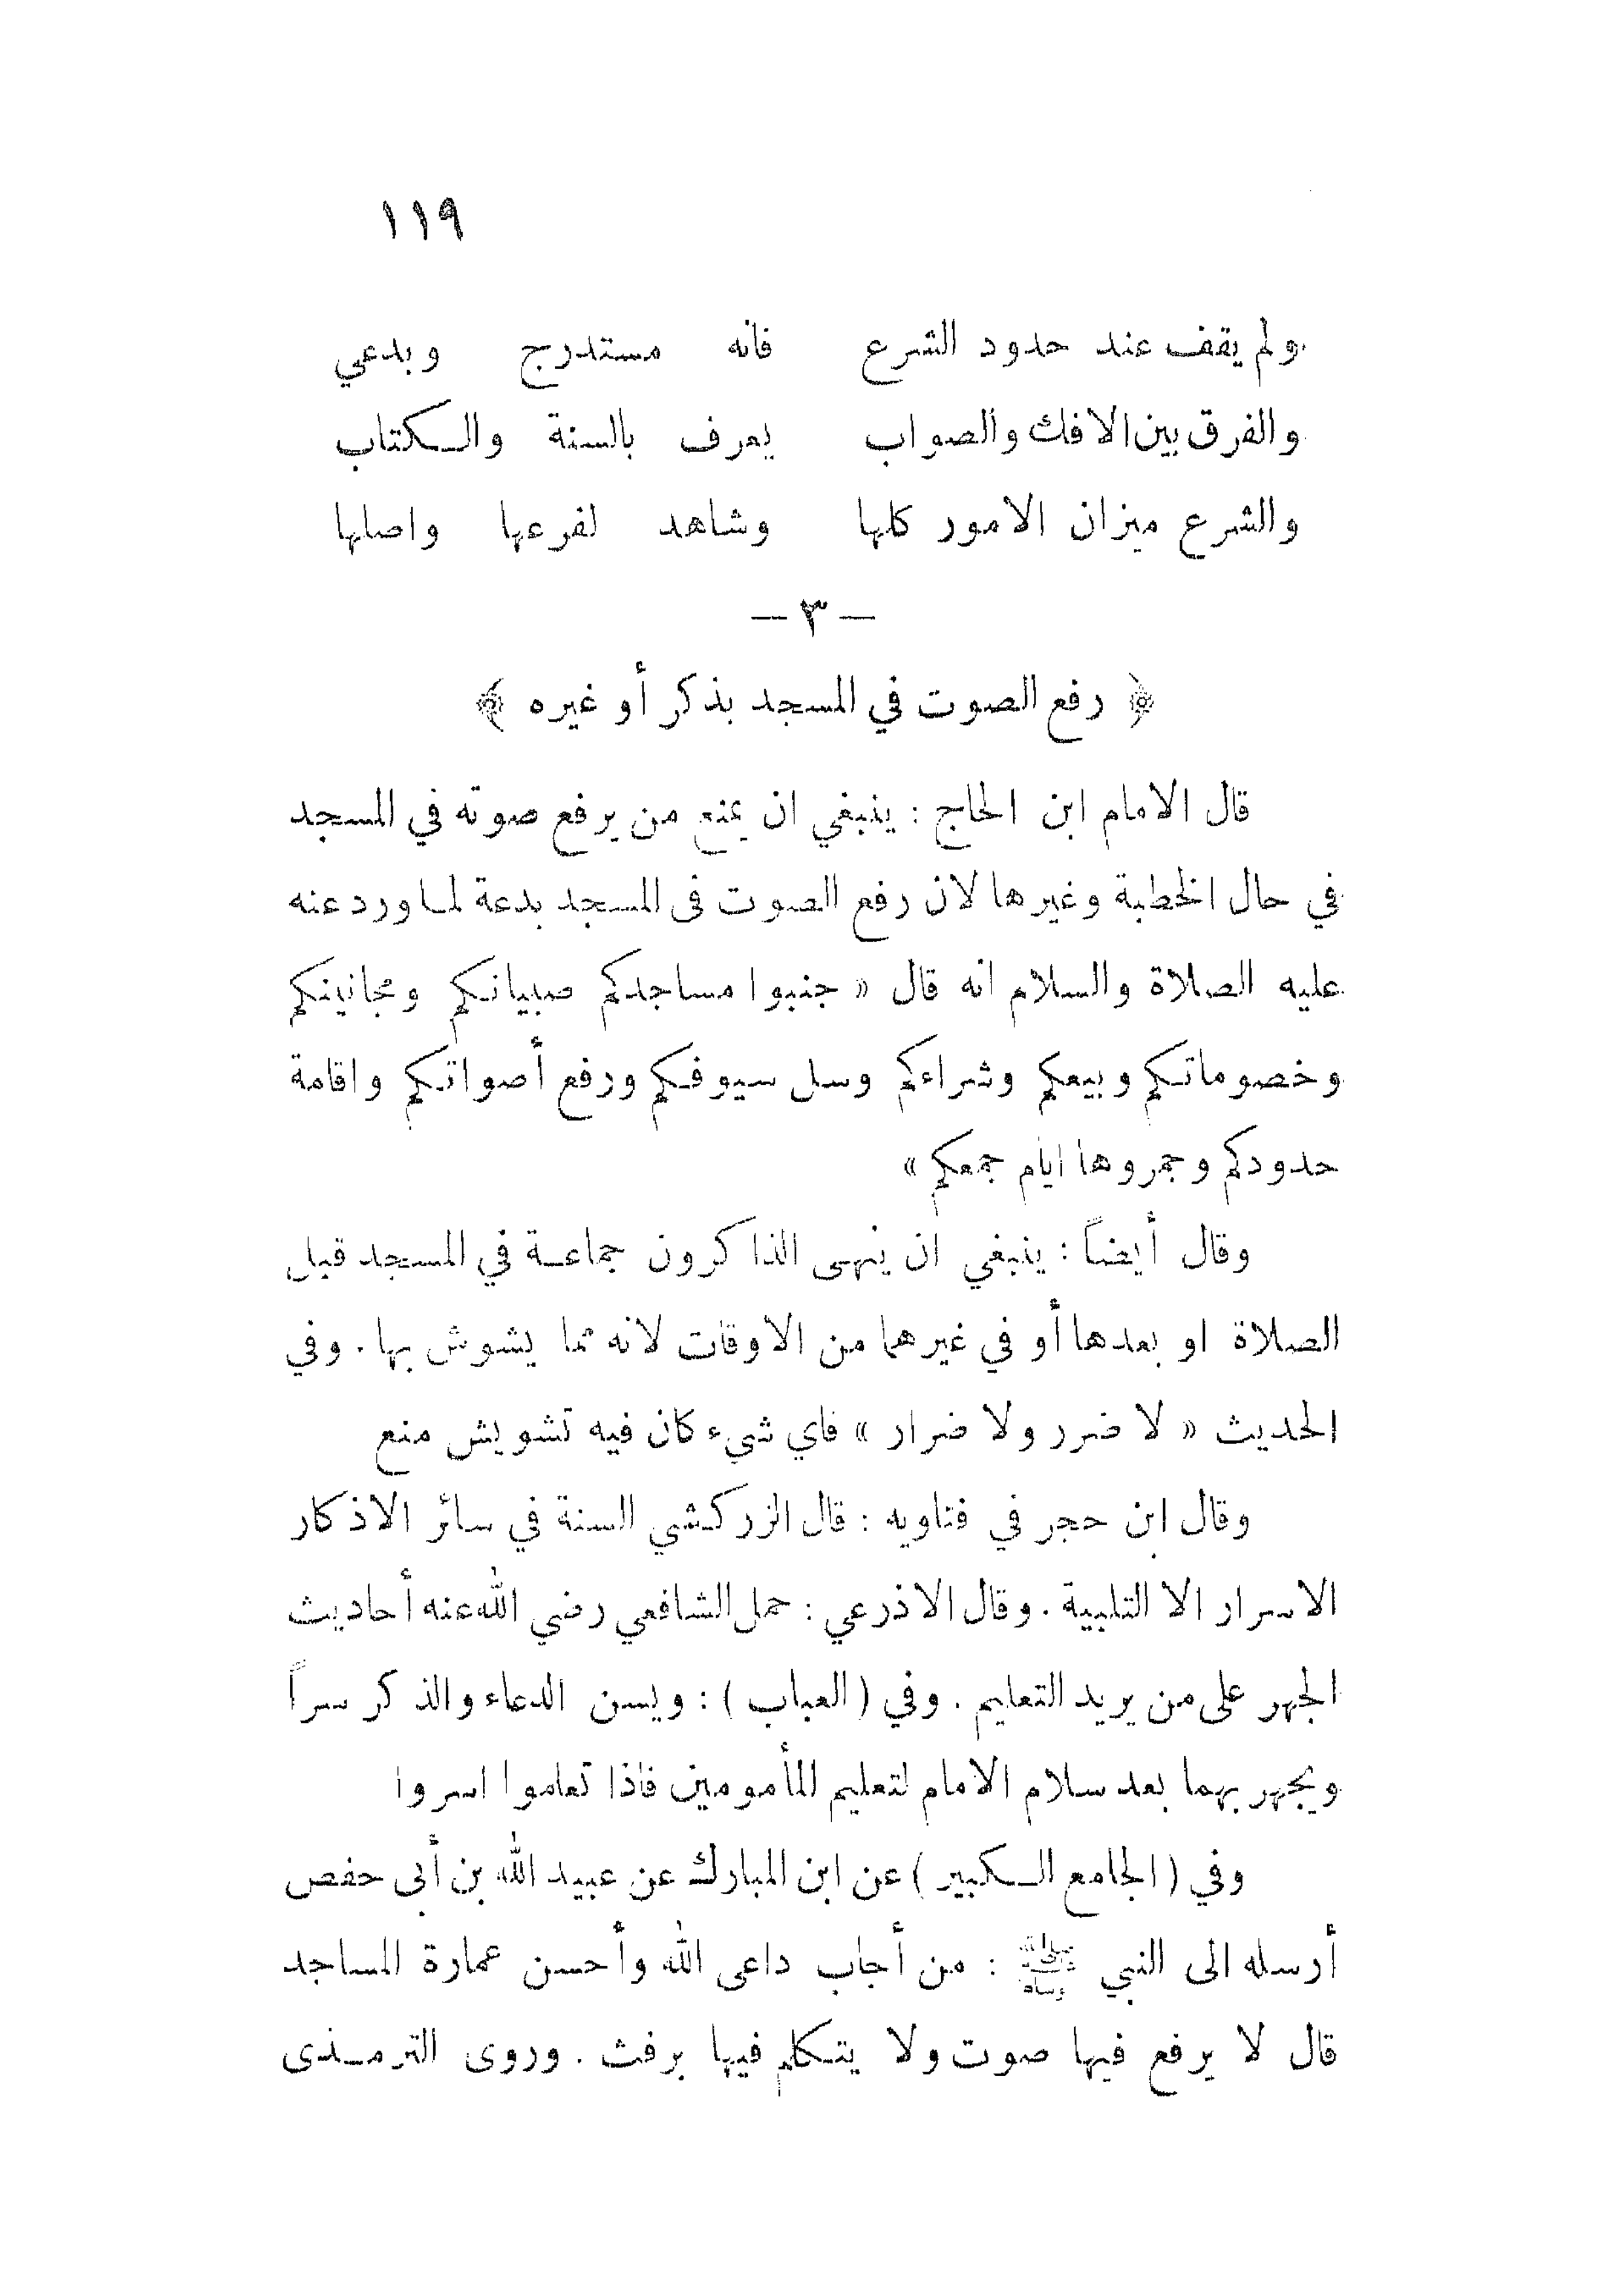 ١١٩
ولم يقف عند حدود الشرع فانه مستدرج وبدعي
والفرق بين الافك والصواب يعرف بالسنة والكتاب
والشرع ميزان الامور كلها وشاهد لفرعها واصلها
— ٣ —
﴿ رفع الصوت في المسجد بذكر أو غيره ﴾
قال الامام ابن الحاج : ينبغي ان يمنع من يرفع صوته في المسجد
في حال الخطبة وغيرها لان رفع الصوت فى المسجد بدعة لما ورد عنه
عليه الصلاة والسلام انه قال « جنبوا مساجدكم صبيانكم ومجانينكم
وخصوماتكم وبيعكم وشراءكم وسل سيوفكم ورفع أصواتكم واقامة
حدودكم وجمروها ايام جمعكم »
وقال أيضاً : ينبغي ان ينهى الذاكرون جماعة في المسجد قبل
الصلاة او بعدها أو في غيرهما من الاوقات لانه مما يشوش بها . وفي
الحديث « لا ضرر ولا ضرار » فاي شيء كان فيه تشويش منع
وقال ابن حجر في فتاويه : قال الزركشي السنة في سائر الاذكار
الاسرار الا التلبية . وقال الاذرعي : حمل الشافعي رضي الله عنه أحاديث
الجهر على من يريد التعليم . وفي ( العباب ) : ويسن الدعاء والذكر سراً
ويجهر بهما بعد سلام الامام لتعليم المأمومين فاذا تعلموا اسروا
وفي ( الجامع الكبير ) عن ابن المبارك عن عبيد الله بن أبى حفص
أرسله الى النبي ﷺ : من أجاب داعى الله وأحسن عمارة المساجد
قال لا يرفع فيها صوت ولا يتكلم فيها برفث . وروى الترمذى